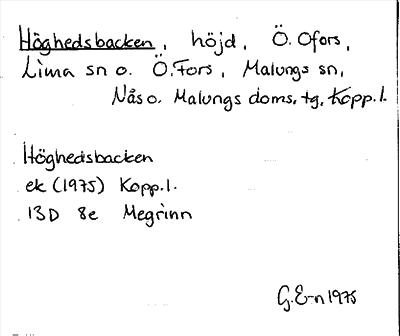 Höghedsbacken, höjd, Ö. Ofors,
Lima sn o. Ö. Fors, Malungs sn,
Nås o. Malungs doms. tg, Kopp. l.
Höghedsbacken
ek (1975) Kopp. l.
13D 8e Megrinn
G. E-n 1975